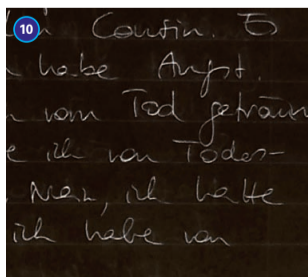 10
Cousin.
habe Angst.
vom Tod geträum
ich von Todes-
Nein, ich hatte
ich habe von